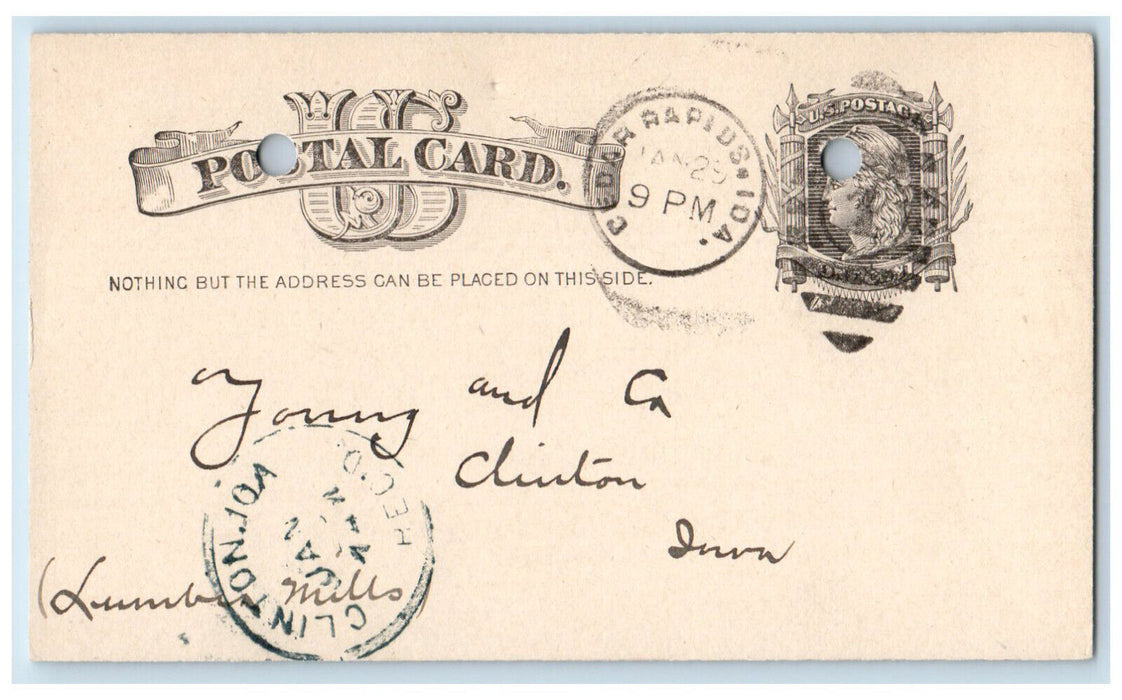 US
POSTAL CARD.
U.S. POSTAGE
CEDAR RAPIDS IOA.
JAN 25
9 PM
NOTHING BUT THE ADDRESS CAN BE PLACED ON THIS SIDE.
Young and Co
Clinton
Iowa
(Lumber Mills)
CLINTON. IOA
REC'D.
JAN